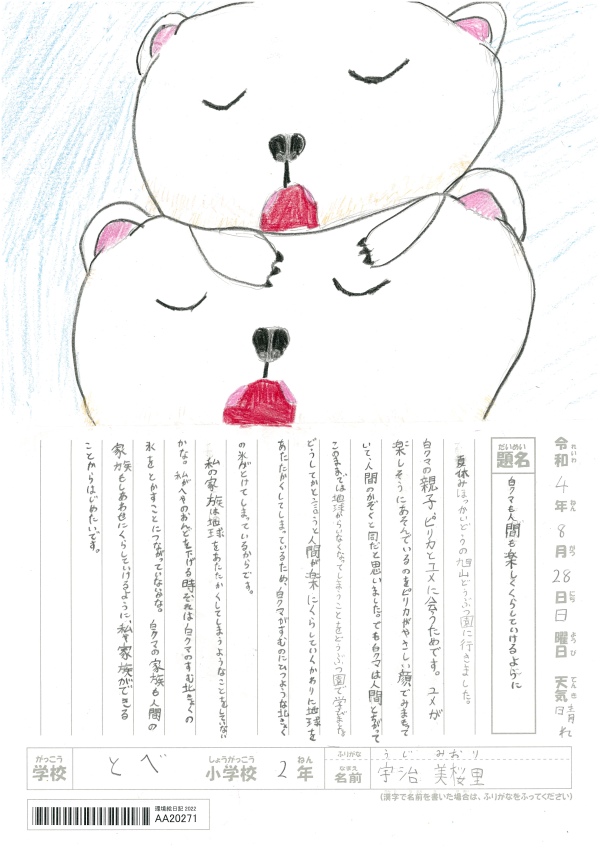 令和 4年 8月 28日 日曜日 天気 晴れ
れいわ ねん がつ にち ようび てんき
だいめい
題名
白クマも人間も楽しくくらしていけるように
夏休みほっかいどうの旭山どうぶつ園に行きました。
白クマの親子、ピリカとユメに会うためです。ユメが
楽しそうにあそんでいるのをピリカがやさしい顔でみまもって
いて、人間のかぞくと同だと思いました。でも白クマは人間とちがって
このままでは地球からいなくなってしまうことをどうぶつ園で学びました。
どうしてかと言うと人間が楽にくらしていくかわりに地球を
あたたかくしてしまっているため、白クマがすむのにひつような北きょく
の氷がとけてしまっているからです。
私の家族は地球をあたたかくしてしまうようなことをしていない
かな。私がへやのおんどを下げる時それは白クマのすむ北きょくの
氷をとかすことにつながっていないかな。白クマの家族も人間の
家族もしあわせにくらしていけるように、私や家族ができる
ことからはじめたいです。
がっこう
学校
とべ
しょうがっこう
小学校
2
ねん
年
ふりがな
うじ みおり
なまえ
名前
宇治 美桜里
(漢字で名前を書いた場合は、ふりがなをふってください)
環境絵日記 2022
AA20271